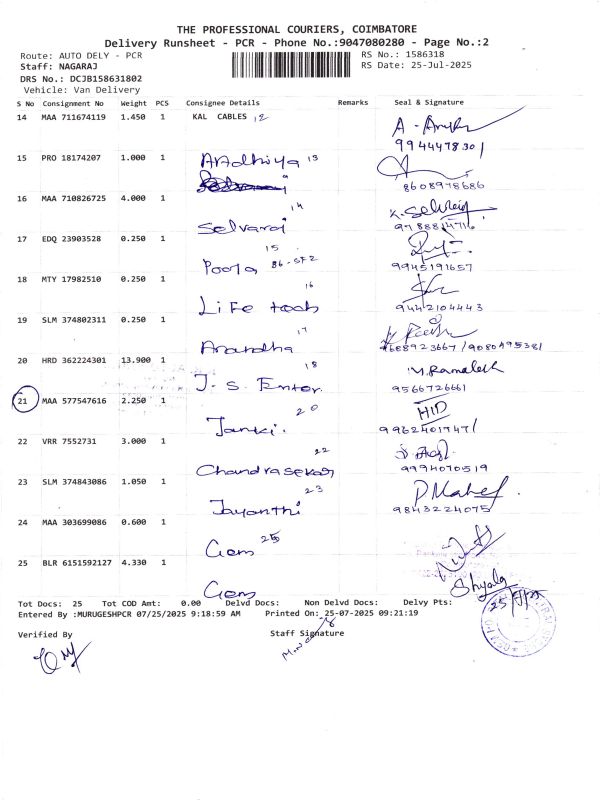 THE PROFESSIONAL COURIERS, COIMBATORE
Delivery Runsheet - PCR - Phone No.:9047080280 - Page No.:2
Route: AUTO DELY - PCR
RS No.: 1586318
Staff: NAGARAJ
RS Date: 25-Jul-2025
DRS No.: DCJB158631802
Vehicle: Van Delivery
S No Consignment No Weight PCS Consignee Details Remarks Seal & Signature
14 MAA 711674119 1.450 1 KAL CABLES 12
9944478301
15 PRO 18174207 1.000 1 Aradhiya 13
8608978686
16 MAA 710826725 4.000 1
14
Selvaraj
9788814716
17 EDQ 23903528 0.250 1
15
Pooja 86-SF2
9945191657
18 MTY 17982510 0.250 1
16
Life tech
9442104443
19 SLM 374802311 0.250 1
17
Anandha
9688923667 / 9080495381
20 HRD 362224301 13.900 1
18
J. S. Enter.
9566726661
21 MAA 577547616 2.250 1
20
HID
Janki.
9962401747/
22 VRR 7552731 3.000 1
22
Chandrasekar
9994070519
23 SLM 374843086 1.050 1
23
Jayanthi
9843224075
24 MAA 303699086 0.600 1
25
Gem
25 BLR 6151592127 4.330 1
Gem
Shyala
Tot Docs: 25 Tot COD Amt: 0.00 Delvd Docs: Non Delvd Docs: Delvy Pts:
Entered By :MURUGESHPCR 07/25/2025 9:18:59 AM Printed On: 25-07-2025 09:21:19
Verified By
Staff Signature